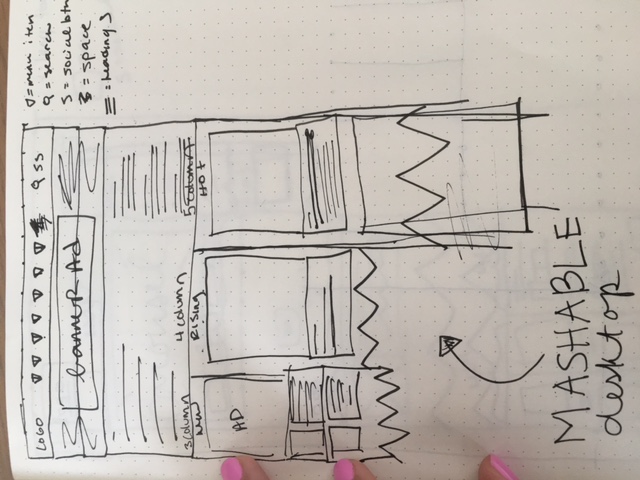 LOGO Q S S
banner Ad
▽ = menu item
Q = search
S = social btn
= space
= heading 3
3 column
New
4 column
Rising
5 column
HOT
AD
MASHABLE
desktop